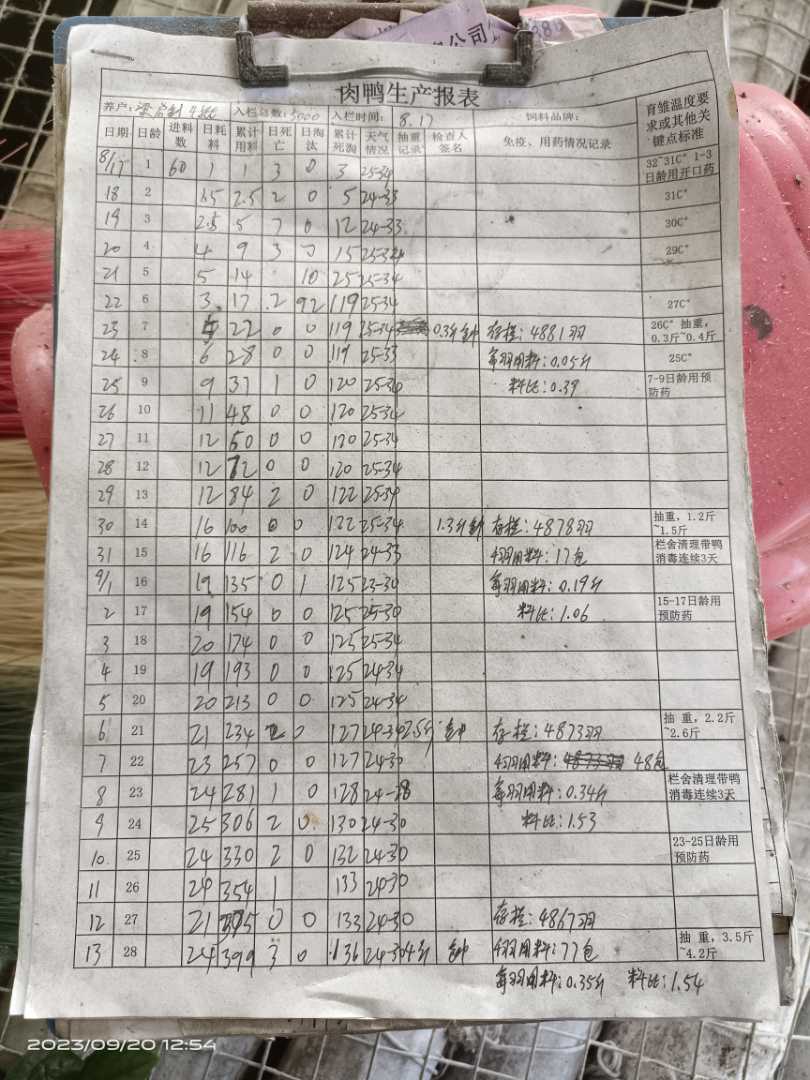 公司
肉鸭生产报表
养户: 入栏总数:5000 入栏时间: 8.17 饲料品牌: 育雏温度要求或其他关键点标准
日期 日龄 进料数 日耗料 累计用料 日死亡 日淘汰 累计死淘 天气情况 抽重记录 检查人签名 免疫、用药情况记录
8/17 1 60 1 1 3 0 3 25-34 32~31C° 1-3日龄用开口药
18 2 1.5 2.5 2 0 5 24-33 31C°
19 3 2.5 5 7 0 12 24-33 30C°
20 4 4 9 3 0 15 25-34 29C°
21 5 5 14 10 25 25-34
22 6 3 17 2 92 119 25-34 27C°
23 7 5 22 0 0 119 25-34 0.3斤 钟 存栏:4881羽 26C° 抽重,0.3斤~0.4斤
24 8 6 28 0 0 119 25-33 每羽用料:0.05斤 25C°
25 9 9 37 1 0 120 25-34 料比:0.39 7-9日龄用预防药
26 10 11 48 0 0 120 25-34
27 11 12 60 0 0 120 25-34
28 12 12 72 0 0 120 25-34
29 13 12 84 2 0 122 25-34
30 14 16 100 0 0 122 25-34 1.3斤 钟 存栏:4878羽 抽重,1.2斤~1.5斤
31 15 16 116 2 0 124 24-33 4羽用料:17包 栏舍清理带鸭消毒连续3天
9/1 16 19 135 0 1 125 23-30 每羽用料:0.19斤
2 17 19 154 0 0 125 25-30 料比:1.06 15-17日龄用预防药
3 18 20 174 0 0 125 25-34
4 19 19 193 0 0 125 24-34
5 20 20 213 0 0 125 24-34
6 21 21 234 2 0 127 24-34 2.5斤 钟 存栏:4873羽 抽 重,2.2斤~2.6斤
7 22 23 257 0 0 127 24-30 4羽用料: 48包
8 23 24 281 1 0 128 24-28 每羽用料:0.34斤 栏舍清理带鸭消毒连续3天
9 24 25 306 2 0 130 24-30 料比:1.53
10 25 24 330 2 0 132 24-30 23-25日龄用预防药
11 26 24 354 1 133 24-30
12 27 21 375 0 0 133 24-30 存栏:4867羽
13 28 24 399 3 0 136 24-30 4斤 钟 4羽用料:77包 抽 重,3.5斤~4.2斤
每羽用料:0.35斤 料比:1.54
2023/09/20 12:54